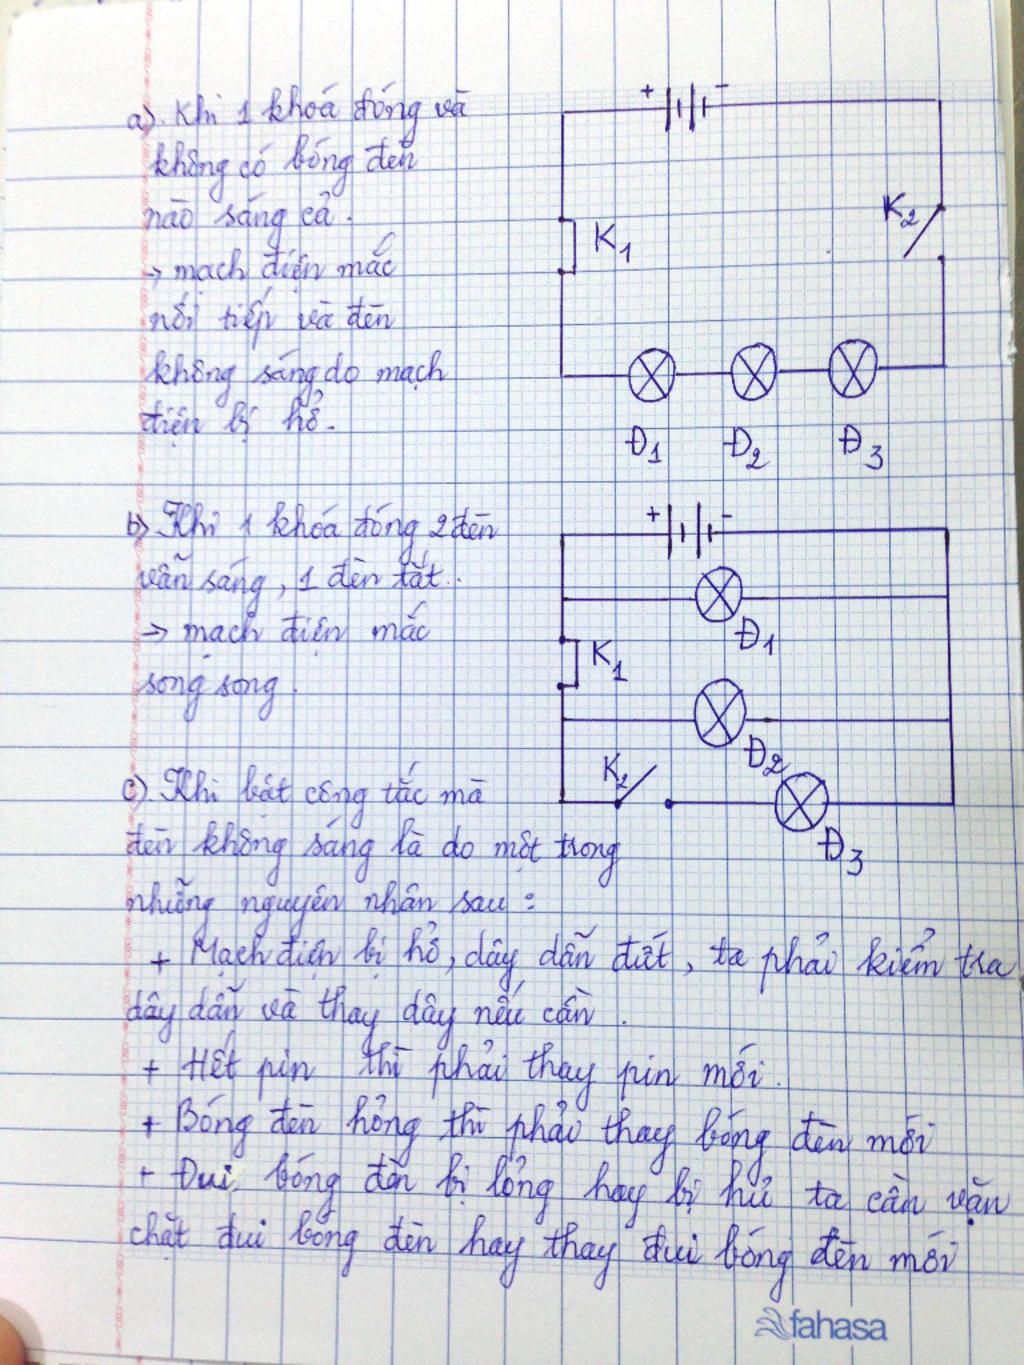 a). Khi 1 khoá đóng và
không có bóng đèn
nào sáng cả.
→ mạch điện mắc
nối tiếp và đèn
không sáng do mạch
điện bị hở.
+ -
K1
K2
Đ1 Đ2 Đ3
b) Khi 1 khóa đóng 2 đèn
vẫn sáng, 1 đèn tắt.
→ mạch điện mắc
song song.
+ -
Đ1
K1
Đ2
K2
Đ3
c). Khi bật công tắc mà
đèn không sáng là do một trong
những nguyên nhân sau:
+ Mạch điện bị hở, dây dẫn đứt, ta phải kiểm tra
dây dẫn và thay dây nếu cần.
+ Hết pin thì phải thay pin mới.
+ Bóng đèn hỏng thì phải thay bóng đèn mới
+ Đui bóng đèn bị lỏng hay bị hư ta cần vặn
chặt đui bóng đèn hay thay đui bóng đèn mới
fahasa